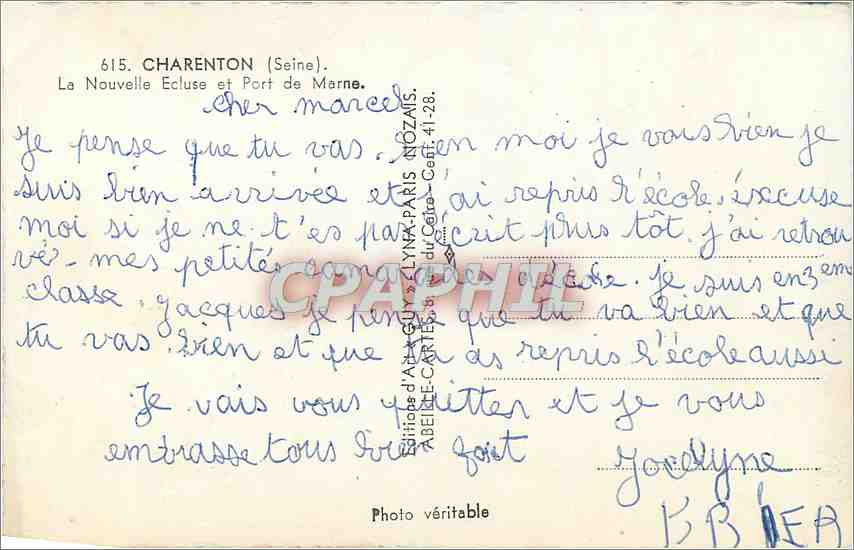 615. CHARENTON (Seine).
La Nouvelle Ecluse et Port de Marne.
cher marcel
Je pense que tu vas bien moi je vais bien je
suis bien arrivée et j'ai repris l'école. éxcuse
moi si je ne t'es pas écrit plus tôt. j'ai retrou
vé - mes petités camarades d'école. je suis en 3 eme
classe. Jacques je pense que tu va bien et que
tu vas bien et que tu as repris l'école aussi
Je vais vous quitter et je vous
embrasse tous bien fort
Jocelyne
Editions d'Art « GUY » LYNA-PARIS NOZAIS.
ABEILLE-CARTES, 8, du Caire - Cent. 41-28.
CPAPHIL
Photo véritable